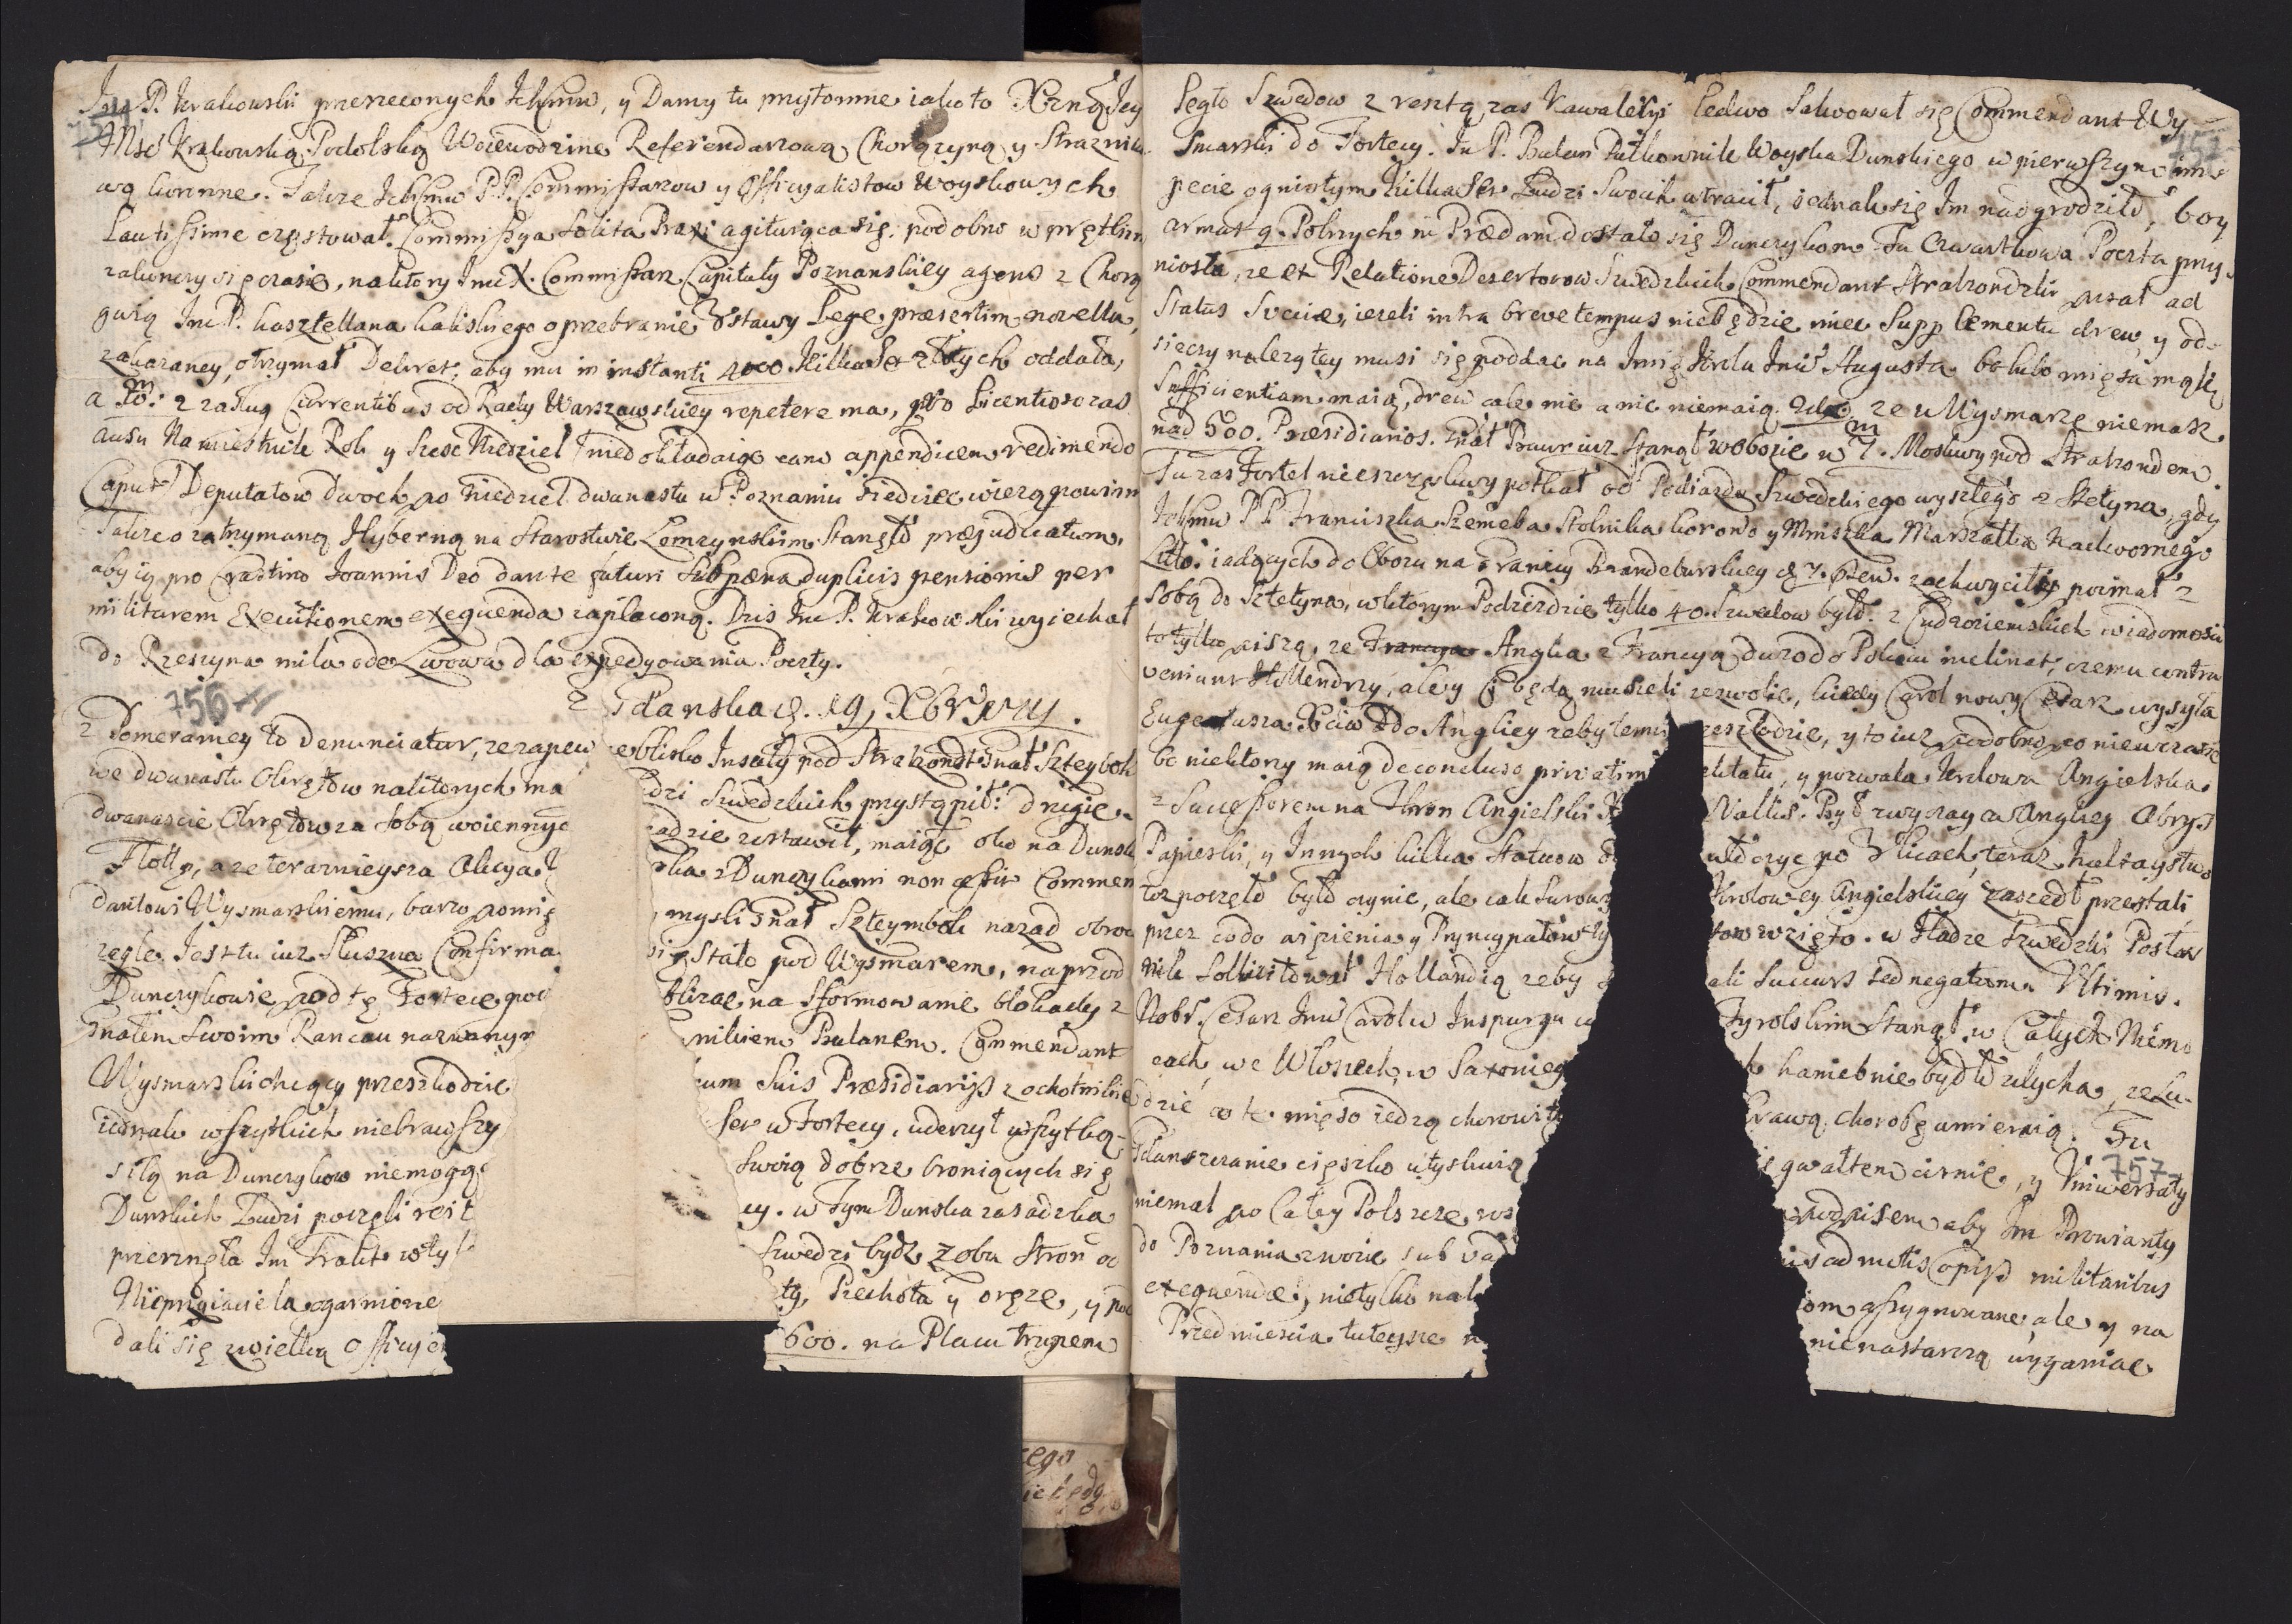 Im P. Krakowski przerzeconych Ichmw, y Damy tu przytomne iako to Xzną Jey
Msć Krakowską Podolską Woiewodzine Referendarzową Chorązyną y Straznik
ową koronne. Takze Ichmw P.P. Commissarzow y Officyalistow Woyskowych
Lautissime częstował. Commissya Solita Praxi agituiąca się, podobno w prętkim
zakonczy się czasie, na ktory Imć X. Commissarz Capituły Poznanskiey agens z Chorą
gwią Im P. kasztellana kaliskiego o przebranie Ustawy Lege præsertim novella,
zakazaney, otrzymał Dekret, aby mu in instanti 4000 kilkaset złłtych oddała,
a 10/m z zasług Currentibus od Raty Warszawskiey repetere ma, pro Licentioso zas
ausu Namiestnik Rok y szesc Niedziel nie dokładaiąc eand appendicem redimendo
Caput Deputatow dwoch po Niedziel dwanastu w Poznaniu siedziec wiezą powinni
Takze o zatrzymaną Hyberną na Starostwie Lemzynskim Stanęło præjudicatum,
aby iy pro Crastino Joannis Deo dante futuri Sub pæna duplicis pensionis per
militarem Executionem exequenda zapłaconą. Dzis Im P. Krakowski wyiechał
do Rzeszyna mila ode Lwowa dla expedyowania Poczty.
756
z Gdanska d. 19 Xbr 1711.
z Pomeraniey to denunciatur, ze zapew eblisko Insuły pod Stralzondt Gnał Szteybok
we dwanastu Okrętow na ktorych ma dzi Szwedzkich przystąpił: drugie
dwanascie Okrętow za sobą woiennyc adzie zostawił, maiąc oko na Dunsk
Flottę, a ze terazniejsza Akcya ska z Dunczykami non cessit Commen
dantowi Wysmarskiemu, barzo pomię mysli Gnał Szteymbok nazad obroc
zegle. Jest tu iuz Słuszna Confirma się Stało pod Wysmarem, naprzod
Dunczykowie pod tę Fortece pod blizac, na sformowanie blokady z
Gnałem Swoim Rancau nazwanym nikiem Bulanem. Commendant
Wysmarski chcący przeszkodzic cum Suis Præsidiarijs z ochotnikie
iednak wszytkich niebrawszy Ser w Fortecy, uderzył wszytką
siłą na Dunczykow niemogąc Swoią dobrze broniących się
Dunskich Ludzi poczęli reit ey. w Tym Dunska zasadzka
przerznęła Im Trakt w ty Szwedzi będz z obu Stron od
Nieprzyiaciela ogarnione ty, Piechota y oręze, y pod
dali się z wielką Officyer 600. na Placu trupem
legło Szwedow z resztą zas Kawaleryi ledwo Salwował się Commendant Wy
smarski do Fortecy. Im P. Bulan Pułkownik Woyska Dunskiego w pierwszym im
pecie ognistym Kilkaset Ludzi Swoich utracił, iednak się Im nadgrodziło, boy
armat 9. Polnych in Prædam dostało się Dunczykom. Tu Czwartkowa Poczta przy
niosła, ze ex Relatione Desertorow Szwedzkich Commendant Stralzondzki pisał ad
Status Sveciæ, iezeli intra breve tempus niebędzie miec Supplementu drew y od
sieczy nalezytey musi się poddac na Imię Krola Imci Augusta bo lubo mięsa mąki
Sufficientiam maią, drew cale nie a nic niemaią. ze u Wysmarze niemasz
nad 500. Præsidiarios. Gnał Baur iuz stanął w obozie w 7/m. Moskwy pod Stralzondem.
Tu zas Fortel nieszczęsliwy potkał od Podiazdu Szwedzkiego wyszłego z Sztetyna, gdy
Ichmw P.P. Franciszka Szembeka Stolnika korono y Mniszka Marszałka Nadwornego
Litto: iadących do Obozu na Granicy Brandeburskiey d. 7. pzen. zachwycił y poimał z
sobą do Sztetyna, w ktorym Podiezdzie tylko 40. Szwedow było. z Cudzoziemskich wiadomosci
to tylko piszą, ze Anglia z Francyą duzo do Pokoiu inclinat, czemu contra
veniunt Hollendrzy, ale y Ci będą musieli zezwolic, kiedy Carol nowy Cesarz wysyła
Eugeniusza Xcia do Angliey zeby temu przeszkodzic, y to iuz podobno po niewczasie
bo niektory maią deconcluso privatim tractatu, y pozwala Krolowa Angielska
z Successorem na Thron Angielski Wallis. Był zwyczay w Angliey Abrys
Papieski, y Innych kilka Statuow włoczyc po Ulicach, teraz hultaystwo
toz poczęło było czynic, ale cale Surowy Krolowey Angielskiey zaszedł przestali
przez co do więzienia y Pryncypałow tow wzięto. w Hadze Szwedzki Posłan
nik Sollicitował Hollandią zeby ali Succurs sed negatum. Ultimis.
Nobr. Cesarz Imć Carol w Inspurgu w Tyrolskim stanął w Całych Niemc
cach, we Włoszech, w Saxoniey h haniebnie bydło zdycha, ze Lu
dzie co te mięso iedzą chorowi krwawą chorobę umieraią. Tu
Gdanszczanie cięszko utyskuią ię gwałtem cisnie, y Uniwersały
757
niemal po Całey Polszcze roz podpisem aby Im Prowianty
do Poznania zwozic sub vad is ad metis Copijs militaribus
exequendæ, nietylko nak om assygnowane, ale y na
Przedmiescia tuteysze n nienastarczą wyganiac
zego
ich gdy